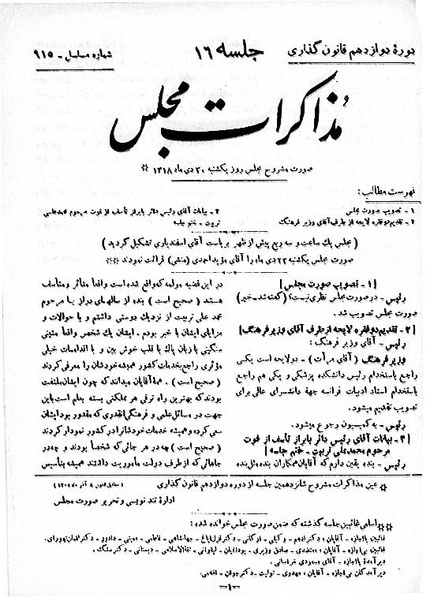 دورهٔ دوازدهم قانون گذاری
جلسه ۱۶
شماره مسلسل - ۹۱۵
مذاکرات مجلس
صورت مشروح مجلس روز یکشنبه ۳۰ دی ماه ۱۳۱۸
فهرست مطالب:
۱ - تصویب صورت مجلس
۲ - تقدیم دو فقره لایحه از طرف آقای وزیر فرهنگ
۳ - بیانات آقای رئیس دائر بابراز تأسف از فوت مرحوم محمدعلی
تربیت - ختم جلسه
( مجلس یک ساعت و سه ربع پیش از ظهر بریاست آقای اسفندیاری تشکیل گردید )
صورت مجلس یکشنبه ۲۳ دی ماه را آقای مؤید احمدی (منشی) قرائت نمودند
[ ۱ - تصویب صورت مجلس ]
رئیس - در صورت مجلس نظری نیست؟ (گفته شد - خیر)
تصویب شد.
[ ۲ - تقدیم دو فقره لایحه از طرف آقای وزیر فرهنگ ]
رئیس - آقای وزیر فرهنگ:
وزیر فرهنگ ( آقای مرآت ) - دو لایحه است یکی
راجع باستخدام رئیس دانشکده پزشکی و یکی هم راجع
باستخدام استاد ادبیات فرانسه جهة دانشسرای عالی برای
تصویب تقدیم میشود.
رئیس - به کمیسیون رجوع میشود.
[ ۳ - بیانات آقای رئیس دائر بابراز تأسف از فوت
مرحوم محمدعلی تربیت - ختم جلسه ]
رئیس - بنده یقین دارم که آقایان همکاران بنده مثل بنده
در این قضیه مولمه که واقع شده است واقعاً متأثر و متأسف
هستند ( صحیح است ) بنده از سالهای دراز با مرحوم
محمد علی تربیت از نزدیک دوستی داشتم و با حوالات و
مزایای ایشان با خبر بودم. ایشان یک شخص واقعاً متینی
سنگینی با زبان پاک با قلب خوش بین و با اقدامات خیلی
مؤثری راجع بخدمات کشور همیشه خودشان را معرفی کردند
( صحیح است ) همه آقایان میدانند که چون ایشان ملتفت
بودند که بهترین راه ترقی هر مملکتی بسته بعلم است باین
جهت در مسائل علمی و فرهنگی آنقدری که مقدور بود ایشان
سعی کرده و همیشه خدمات خودشان را در کشور نمودار کردند
( صحیح است ) چه در هر جائی که شخصاً بودند و چه در
جاهائی که از طرف دولت مأموریت داشتند همیشه بتأسیس
عین مذاکرات مشروح شانزدهمین جلسه از دوره دوازدهم قانون گذاری
اداره تند نویسی و تحریر صورت مجلس
اسامی غائبین جلسه گذشته که ضمن صورت مجلس خوانده شده:
- ۱ -